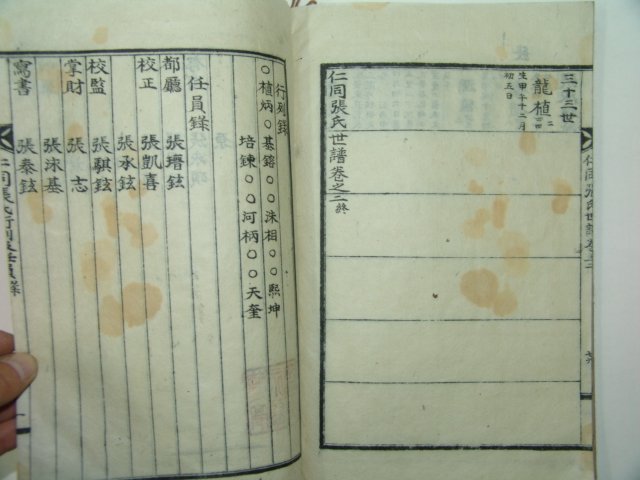 三十三世
龍植
生甲午十二月
初五日
仁同張氏世譜卷之二終
仁同張氏世譜卷之二
行列錄
○植炳○基鎔○洙相○熙坤
培鍊○河柄○○天奎
任員錄
都廳 張瑨鉉
校正 張凱喜
張承鉉
校監 張騏鉉
掌財 張志
張泳基
寫書 張泰鉉